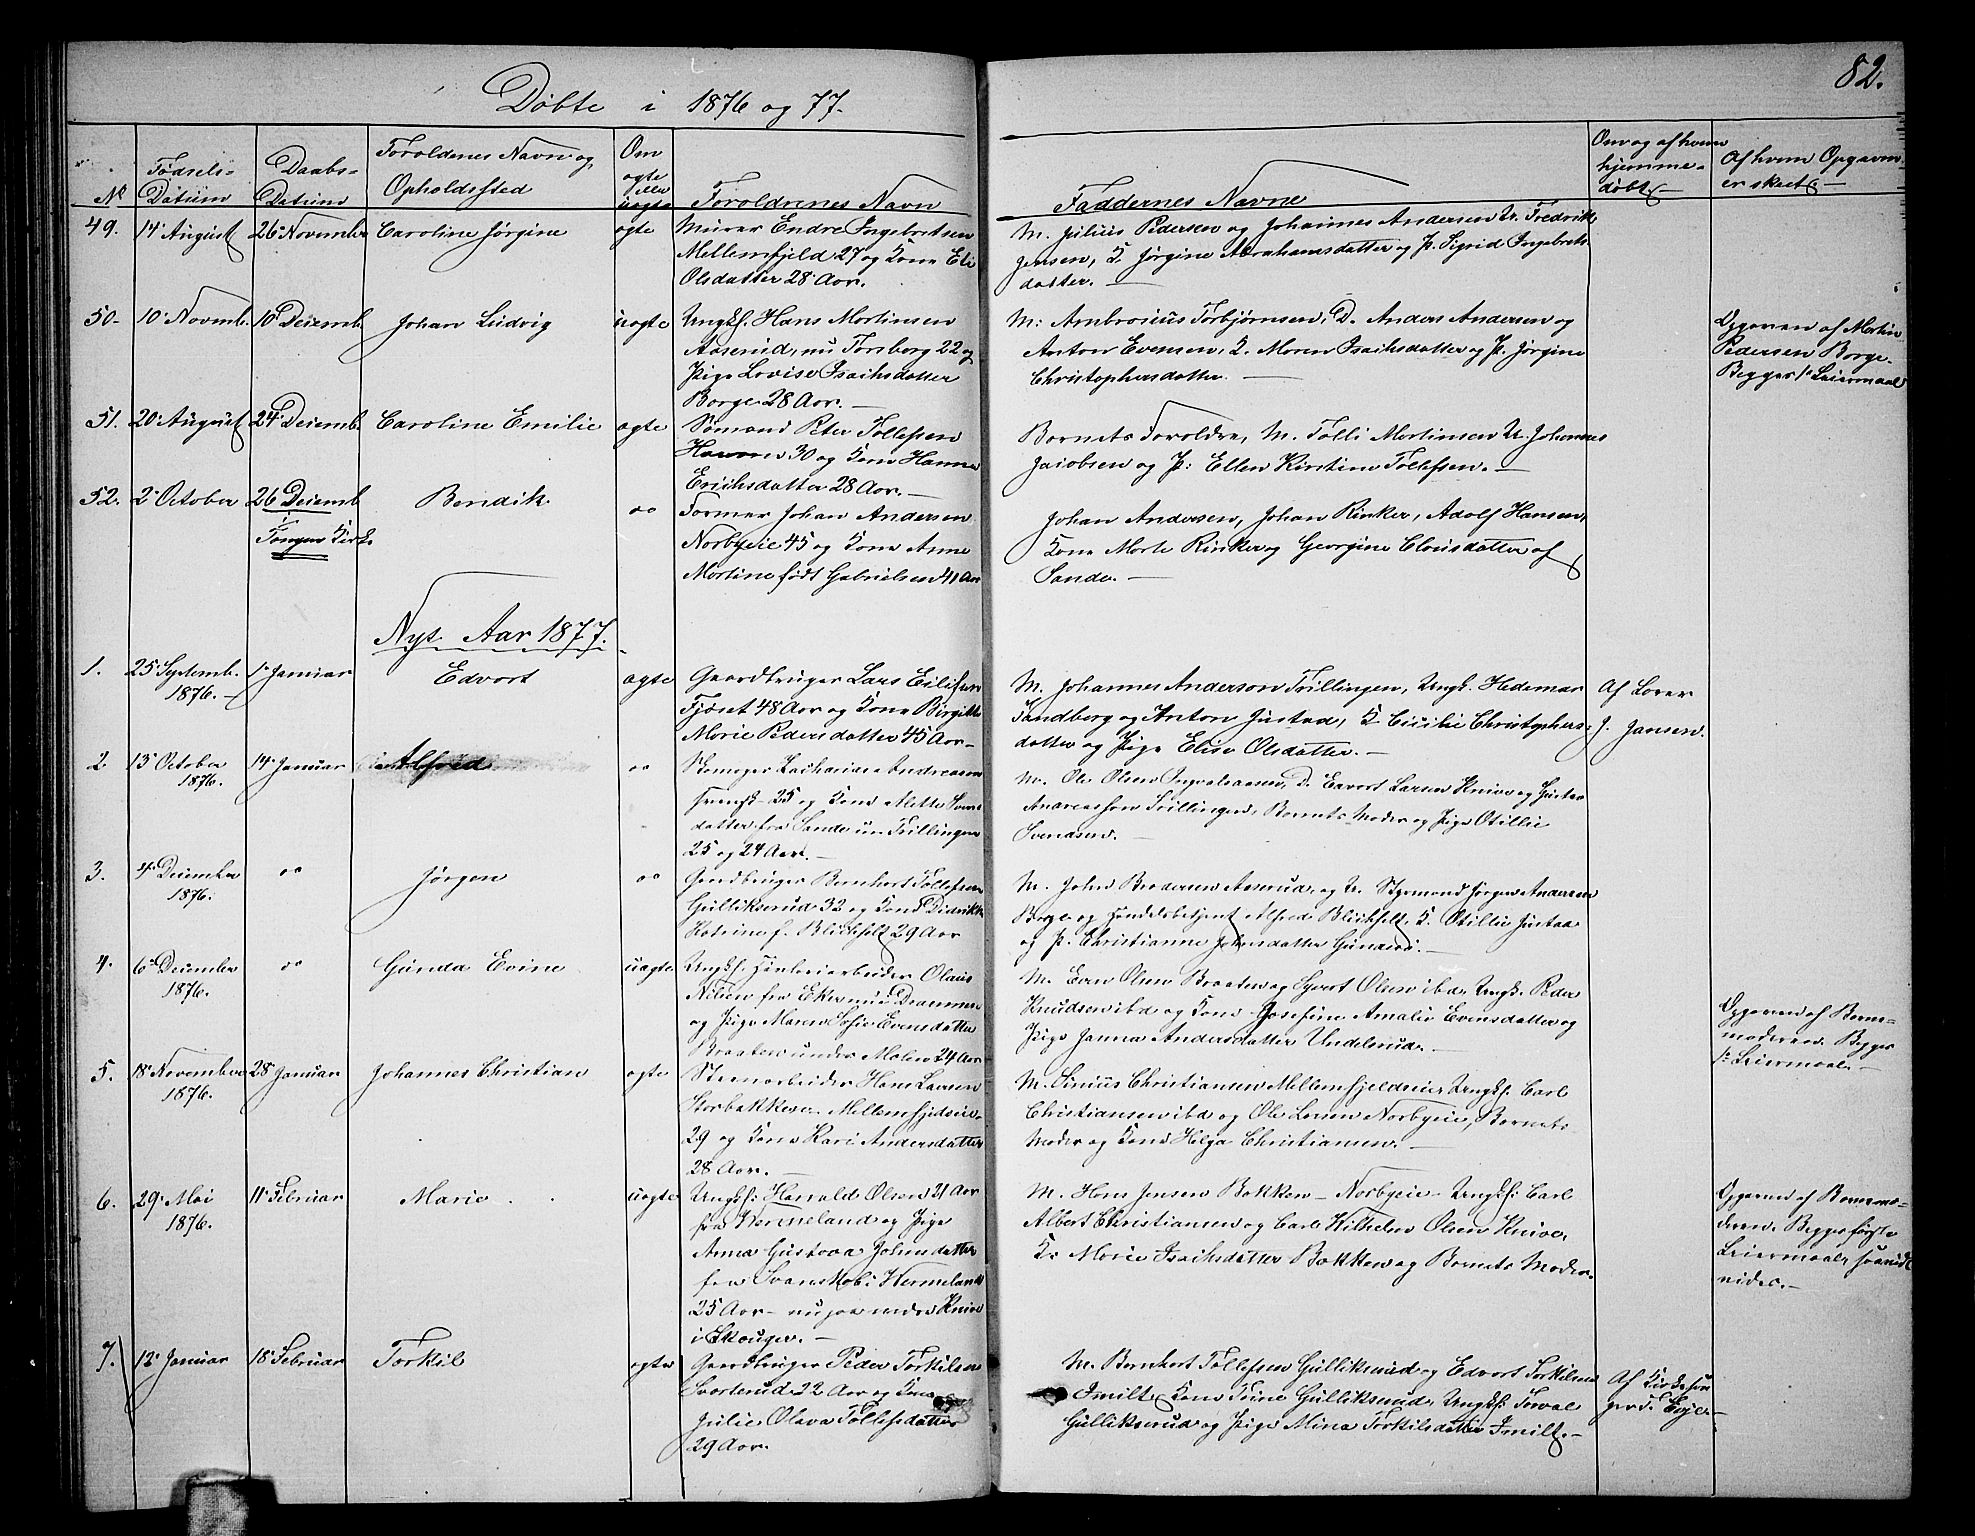 82.
Döbte i 1876 og 77.
No
Födsels-
Datum
Daabs-
Datum
Foroldenes Navn og
Opholdssted
Om
ægte
eller
uægte
Foroldrenes Navn
Faddernes Navne
Om og af hvem
hjemme-
döbt
Af hvem Opgavn.
er skeet
49.
14 August
26 Novembr
Caroline Jörgine
ægte
Murer Endre Ingebretsen
Mellemfjeld 27 og Kone Eli
Olsdatter 28 Aar.
M. Julius Pedersen og Johannes Andersen U. Fredrik
Jensen, K Jörgine Abrahamsdatter og P. Sigrid Ingebrets
datter.
50.
10 Novmb.
10 Desemb.
Johan Ludvig
uægte
Ungkf. Hans Martinsen
Aaserud, nu Torsborg 22 og
Pige Lovise Isaihsdatter
Borge 28 Aar.
M: Ambrosius Torbjörnsen, D. Anders Andersen og
Anton Evensen, K. Maren Isaihsdatter og P. Jörgine
Christophersdatter.
Opgaven af Martin
Pedersen Borge.
Begges 1e Leiermaal
51.
20 August
24 Desemb.
Caroline Emilie
ægte
Sömand Peter Tollefsen
30 og Kone Hanna
Erichsdatter 28 Aar.
Barnets Foroldre, M. Tolli Martinsen U. Johannes
Jacobsen og P: Ellen Kirstine Tollefsen.
52.
2 October
26 Desemb
i
Tangen Kirk.
Bendik
oo
Former Johan Andersen
Norbyeie 45 og Kone Anne
Martine född Gabrielsen 41 Aar
Johan Andersen, Johan Rinker, Adolf Hansen,
Kone Marte Rinker og Georgine Clausdatter af
Sande.
Nyt Aar 1877.
1.
25 Septemb.
1876.
1 Januar
Edvart
ægte
Gaardbruger Lars Eilifsen
Fjöset 48 Aar og Kone Birgitte
Marie Pedersdatter 45 Aar
M. Johannes Anderson Trillingen, Ungk. Hedemar
Sandberg og Anton Justad, K Cicilie Christophers-
datter og Pige Elise Olsdatter.
Af Lærer
J. Jansen.
2.
13 October
1876.
14 Januar
Alfred
oo
Skomager Zacharias Andreassen
svensk 25 og Kone Alette Svens
datter fra Sande nu Trillingen
25 og 24 Aar.
M. Ole Olsen Ingvaldsaasen, D. Edvart Larsen Knive og Gustav
Andreasson Trillingen, Barnets Moder og Pige Otillie
Svendsen.
3.
4 Desember
1876.
oo
Jörgen
oo
Gaardbruger Bernhart Tollefsen
Gulliksrud 32 og Kone Didrikke
Katrine f. Blichfelt 29 Aar
M. John Brodersen Aaserud, og U. Styrmand Jörgen Andersen
Borge og Handelsbetjent Alfred Blichfelt, K. Otillie Justad
og P. Christianne Johnsdatter
4.
6 Desember
1876.
oo
Gunda Evine
uægte
Ungkf. Olaus
Nilsen fra Eker nu Drammen
og Pige Maren Sofie Evensdatter
Braaten under Malen 24 Aar
M. Even Olsen Braaten og Syvert Olsen ibd, Ungk. Peder
Knudsen ibd og Kone Josefine Amalie Evensdatter og
Pige Janna Andersdatter Undelsrud.
Opgaven af Barne-
moderen. Begges
1e Leiermaal.
5.
18 November
1876.
28 Januar
Johannes Christian
ægte
Steenarbeider Hans Larsen
Storbakken Mellemfjedseie
29 og Kone Kari Andersdatter
28 Aar.
M. Sinius Christiansen Mellemfjeldseie, Ungkf. Carl
Christiansen ibd og Ole Larsen Norbyeie, Barnets
Moder og Kone Helga Christiansen.
6.
29 Mai
1876.
11 Februar
Marie
uægte
Ungkf: Harrald Olsen 21 Aar
fra Wermeland og Pige
Anna Gustava Johnsdatter
fra Svanskob i Wermeland
25 Aar – under Knive
i Skouger.
M. Hans Jensen Bakken – Norbyeie – Ungkf: Carl
Albert Christiansen og Carl Wilhelm Olsen Knive,
K. Marie Isaihsdatter Bakken og Barnets Moder.
Opgaven af Barnemo-
deren. Begges förste
Leiermaal, saavidt
vides.
7.
12 Januar
18 Februar
Torkil
ægte
Gaardbruger Peder Torkilsen
Svarterud 22 Aar og Kone
Julie Olava Tollefsdatter
29 Aar.
M. Bernhart Tollefsen Gulliksrud og Edvart Torkilsen
Smilt, Kone Trine Gulliksrud, Ungkf. Torval
Gulliksrud og Pige Mina Torkilsdatter Smilt.
Af Kirkesan
ger J. Evje.